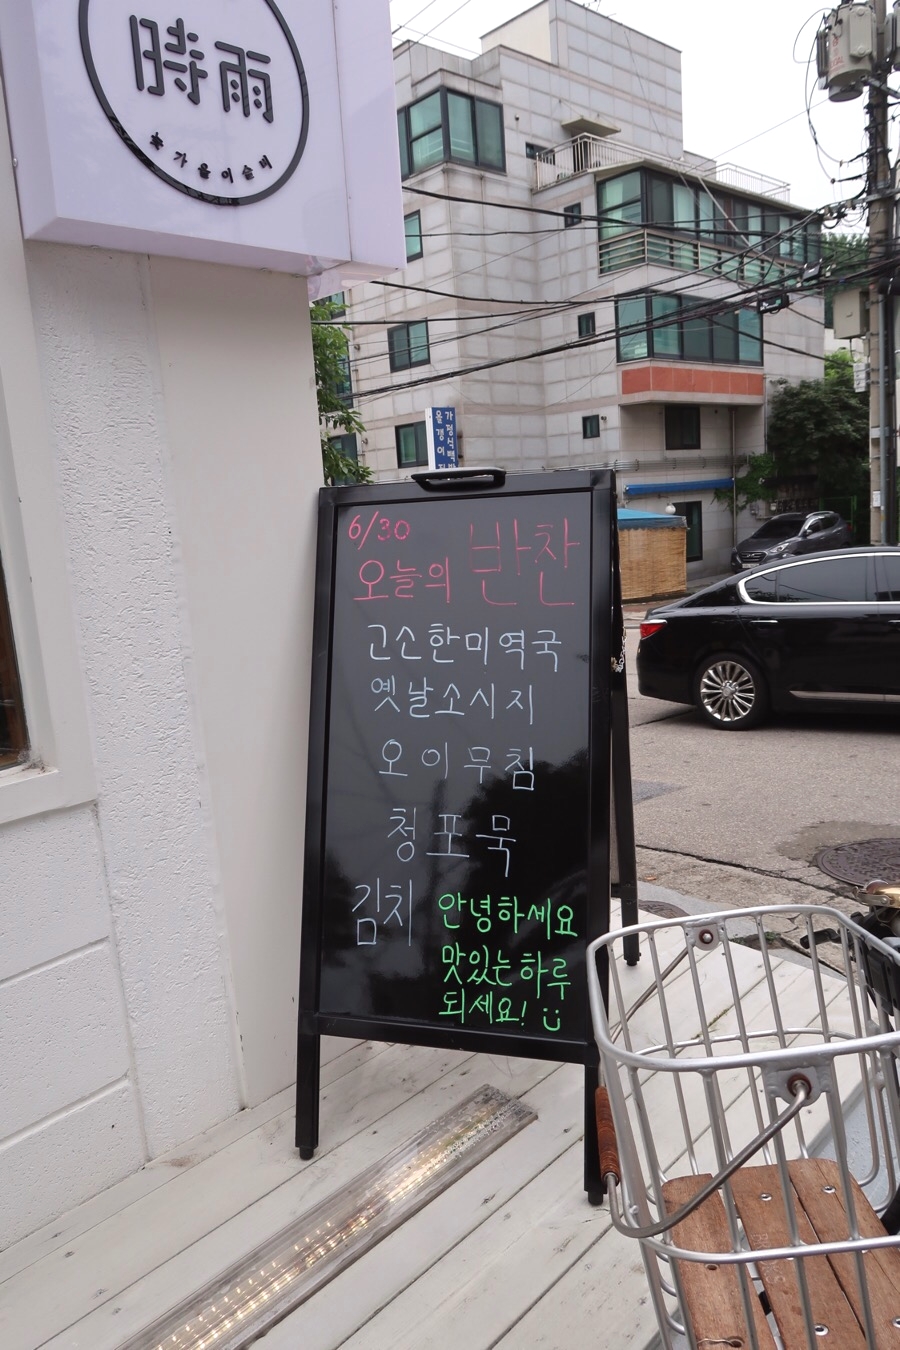 時雨
가을이슬비
가평식백반
올갱이
6/30
오늘의 반찬
고소한미역국
옛날소시지
오이무침
청포묵
김치
안녕하세요
맛있는하루
되세요!